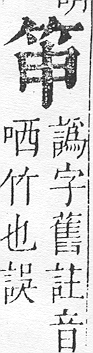 譌字舊註音
哂竹也誤